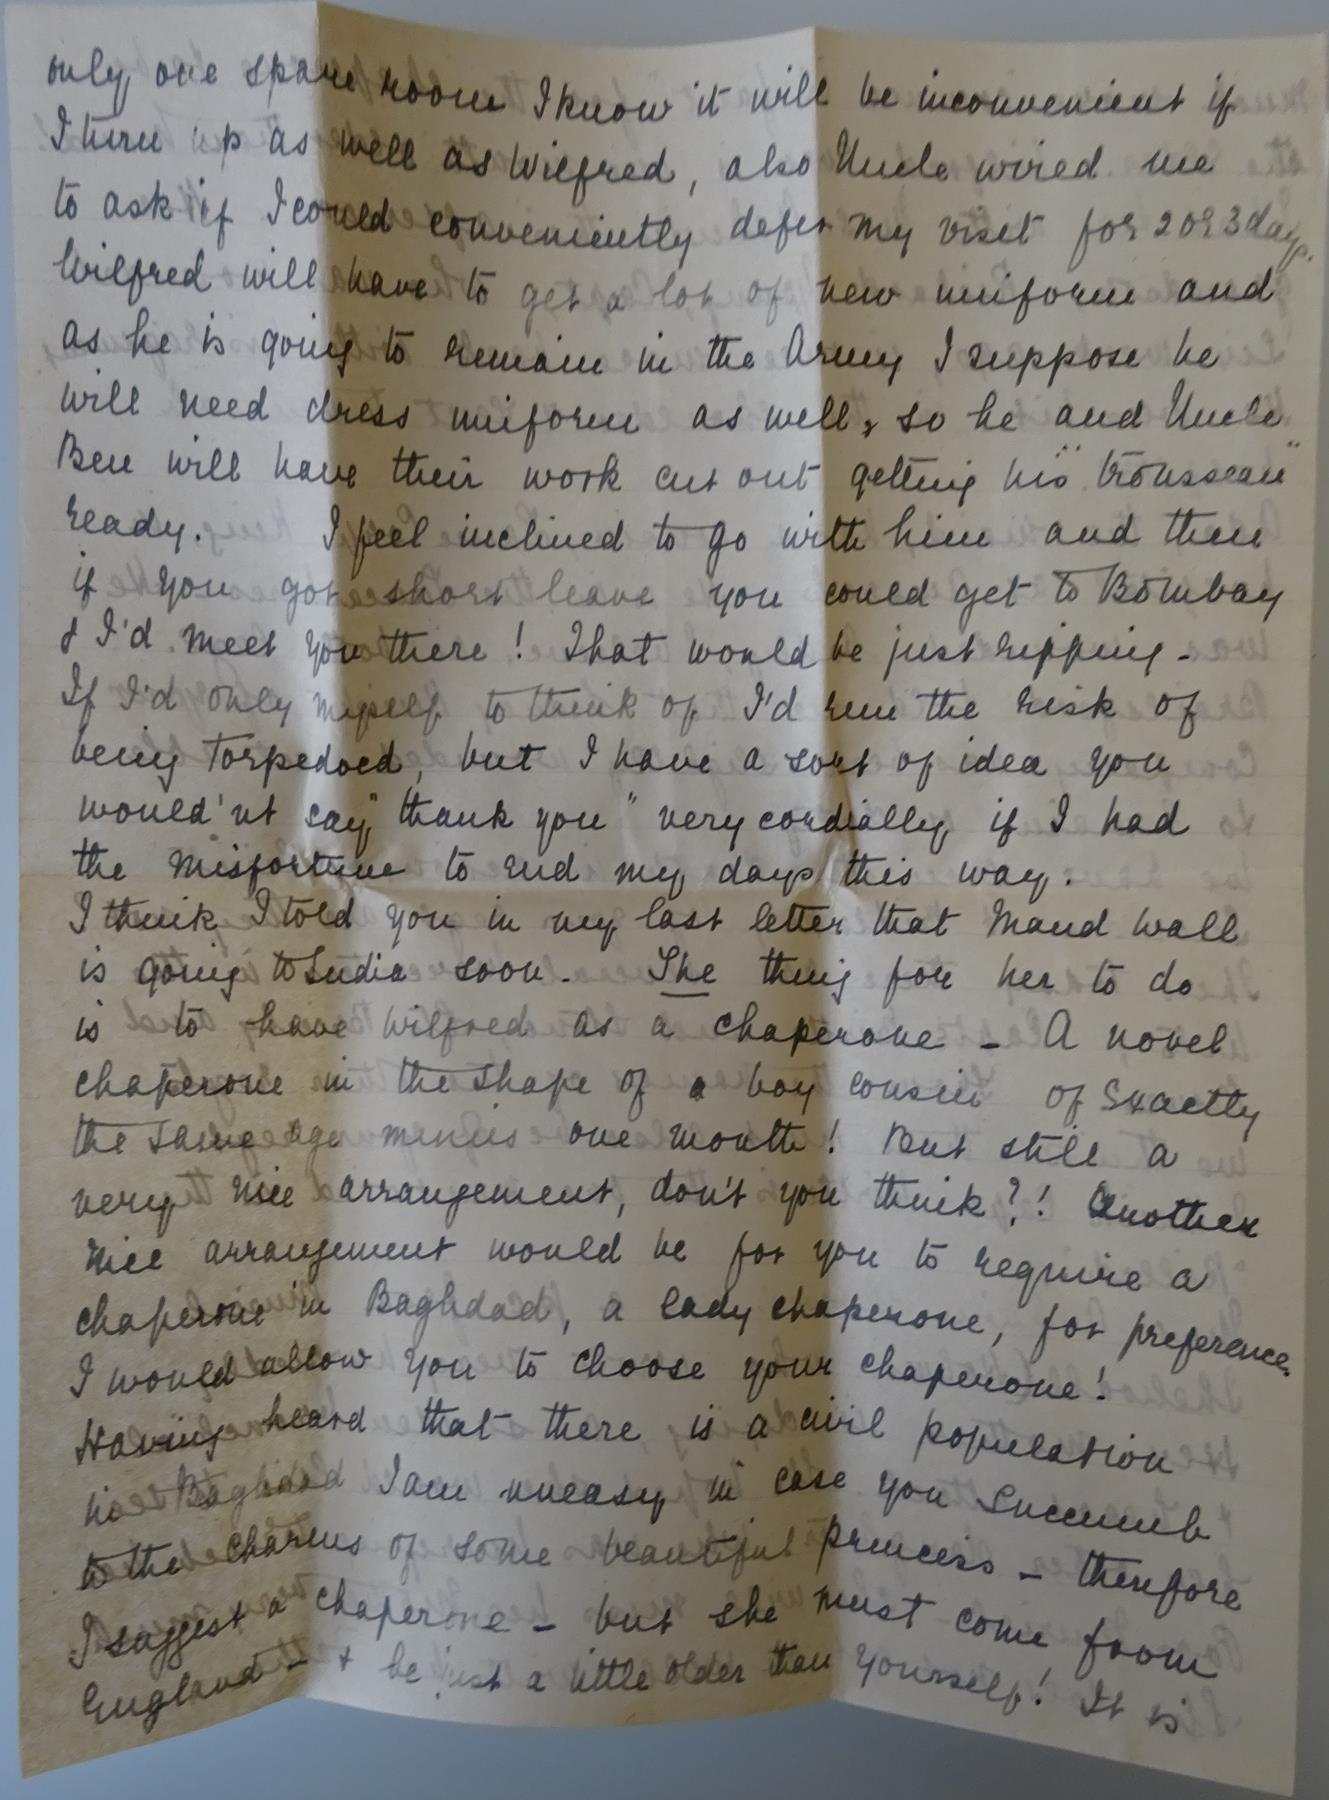 only one spare room I know it will be inconvenient if
I turn up as well as Wilfred, also Uncle wired me
to ask if I could conveniently defer my visit for 2 or 3 days.
Wilfred will have to get a lot of new uniform and
as he is going to remain in the Army I suppose he
will need dress uniform as well, so he and Uncle
Ben will have their work cut out getting his "trousseau"
ready. I feel inclined to go with him and then
if you got short leave you could get to Bombay
& I'd meet you there! That would be just ripping -
If I'd only myself to think of I'd run the risk of
being torpedoed, but I have a sort of idea you
would'nt say "thank you" very cordially if I had
the misfortune to end my days this way.
I think I told you in my last letter that Maud Wall
is going to India soon - The thing for her to do
is to have Wilfred as a chaperone - A novel
chaperone in the shape of a boy cousin of exactly
the same age minus one month! But still a
very nice arrangement, don't you think?! Another
nice arrangement would be for you to require a
chaperone in Baghdad, a lady chaperone, for preference.
I would allow you to choose your chaperone!
Having heard that there is a civil population
in Baghdad I am uneasy in case you succumb
to the charms of some beautiful princess - therefore
I suggest a chaperone - but she must come from
England - & be just a little older than yourself! It is